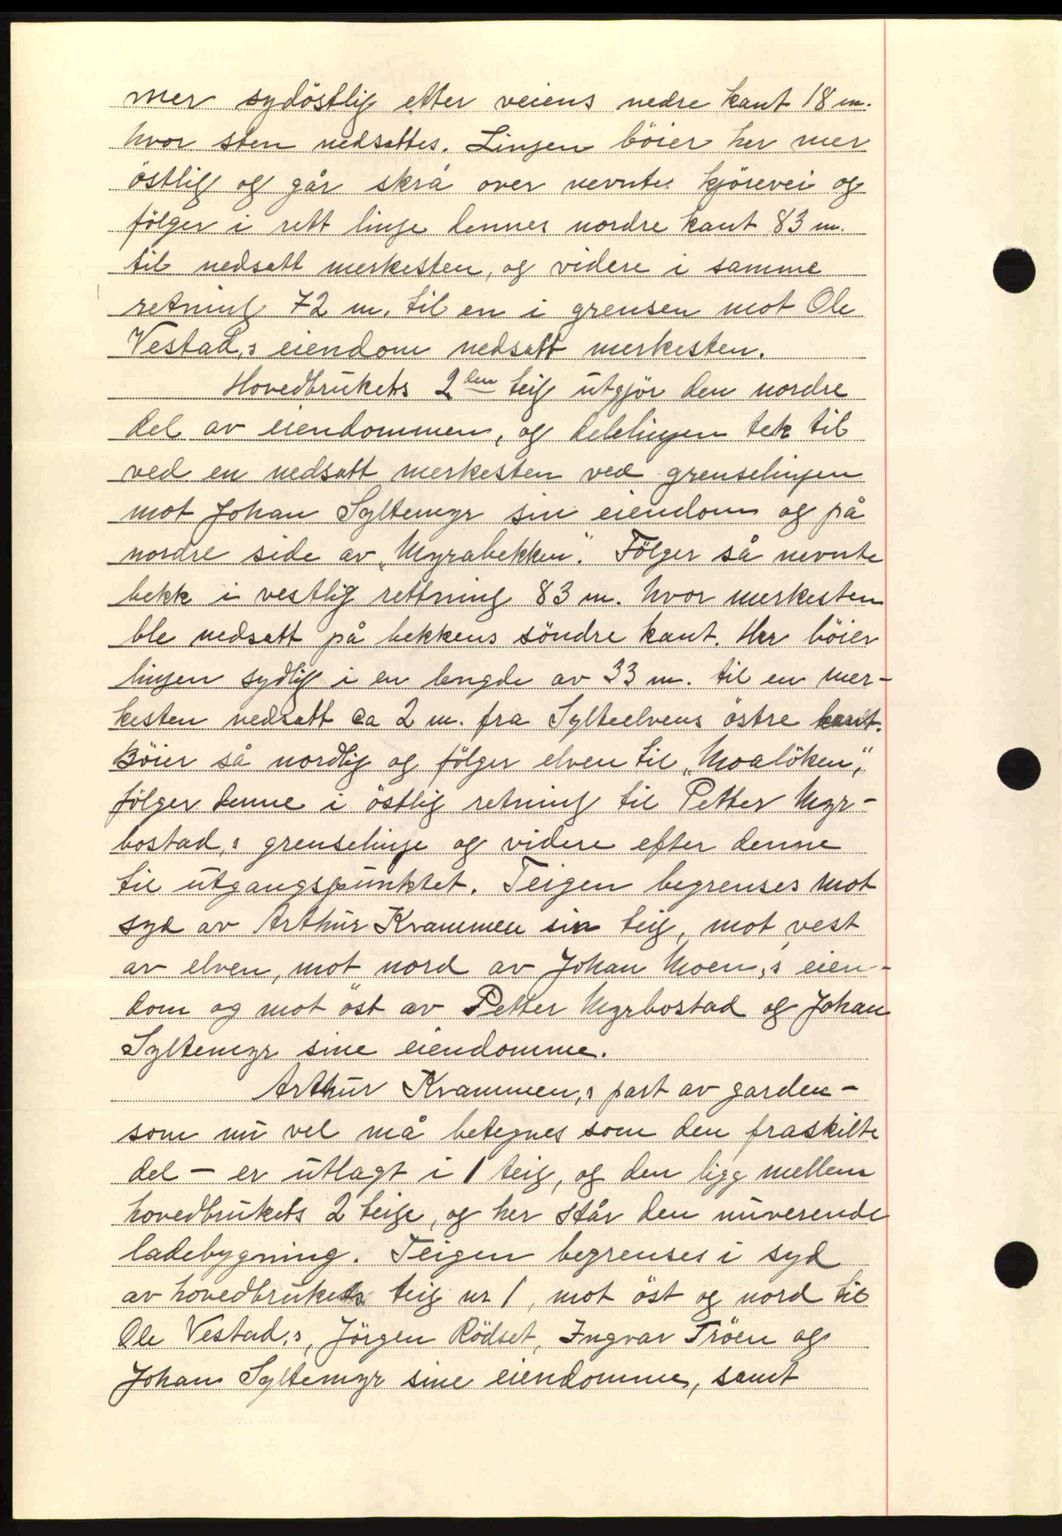 mer sydöstlig etter veiens nedre kant 18 m.
hvor sten nedsattes. Linjen böier her mer
östlig og går skrå over nevnte kjörevei og
fölger i rett linje dennes nordre kant 83 m.
til nedsatt merkesten, og videre i samme
retning 72 m. til en i grensen mot Ole
Vestad,s eiendom nedsatt merkesten.
Hovedbrukets 2den teig utgjör den nordre
del av eiendommen, og delelinjen tek til
ved en nedsatt merkesten ved grenselinjen
mot Johan Syltemyr sin eiendom og på
nordre side av "Myrabekken". Fölger så nevnte
bekk i vestlig rettning 83 m. hvor merkesten
ble nedsatt på bekkens söndre kant. Her böier
linjen sydlig i en lengde av 33 m. til en mer-
kesten nedsatt ca 2 m. fra Sylteelvens östre kant.
Böier så nordlig og fölger elven til "Moalöken",
fölger denne i östlig retning til Petter Myr-
bostad,s grenselinje og videre efter denne
til utgangspunktet. Teigen begrenses mot
syd av Arthur Krammen sin teig, mot vest
av elven, mot nord av Johan Moen,s eien-
dom og mot öst av Petter Myrbostad og Johan
Syltemyr sine eiendomme.
Arthur Krammen,s part av garden -
som nu vel må betegnes som den fraskilte
del - er utlagt i 1 teig, og den ligg mellem
hovedbrukets 2 teige, og her står den nuverende
ladebygning. Teigen begrenses i syd
av hovedbrukets teig nr 1, mot öst og nord til
Ole Vestad,s, Jörgen Rödset, Ingvar Tröen og
Johan Syltemyr sine eiendomme, samt